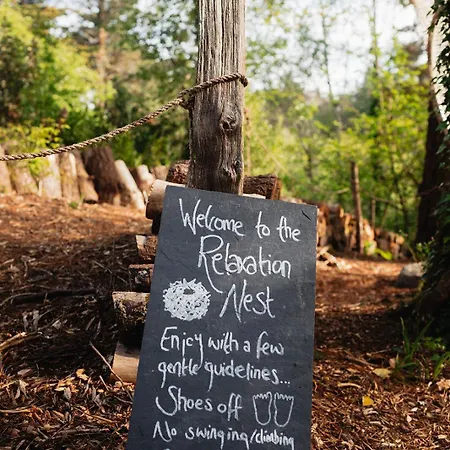 Welcome to the
Relaxation
Nest
Enjoy with a few
gentle guidelines...
Shoes off
No swinging/climbing